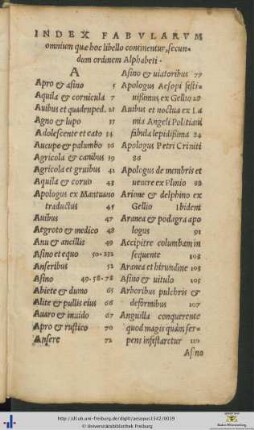 INDEX FABVLARVM
omnium quæ hoc libello continentur, secun-
dum ordinem Alphabeti.
A
Apro & asino 5
Aquila & cornicula 7
Auibus et quadruped. 28
Agno & lupo 31
Adolescente et cato 34
Aucupe & palumbo 36
Agricola & canibus 39
Agricola et gruibus 41
Aquila & coruo 43
Apologus ex Mantuano
traductus 45
Auibus 47
Aegroto & medico 48
Anu & ancillis 49
Asino et equo 50.232
Anseribus 52
Asino 49.58.78
Abiete & dumo 65
Alite & pullis eius 66
Auaro & inuido 67
Apro & rustico 70
Ansere 72
Asino & uiatoribus 77
Apologus Aesopi festi-
uissimus ex Gellio
Auibus et noctua ex La
mia Angeli Politiani
fabula lepidissima 24
Apologus Petri Criniti
Apologus de membris et
uentre ex Liuio
Arione & delphino ex
Gellio ibidem
Aranea & podagra apo
logus 91
Accipitre columbam in
sequente 102
Aranea et hirundine 103
Asino & uitulo 105
Arboribus pulchris &
deformibus 107
Anguilla conquerente
quod magis quàm ser-
pens infestaretur 110
Asino
http://dl.ub.uni-freiburg.de/diglit/aesopus1542/0019
© Universitätsbibliothek Freiburg